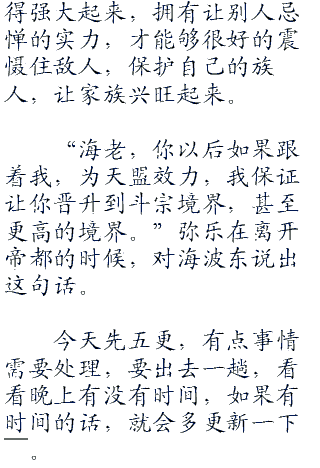 得强大起来，拥有让别人忌
惮的实力，才能够很好的震
慑住敌人，保护自己的族
人，让家族兴旺起来。
“海老，你以后如果跟
着我，为天盟效力，我保证
让你晋升到斗宗境界，甚至
更高的境界。”弥乐在离开
帝都的时候，对海波东说出
这句话。
今天先五更，有点事情
需要处理，要出去一趟，看
看晚上有没有时间，如果有
时间的话，就会多更新一下
。